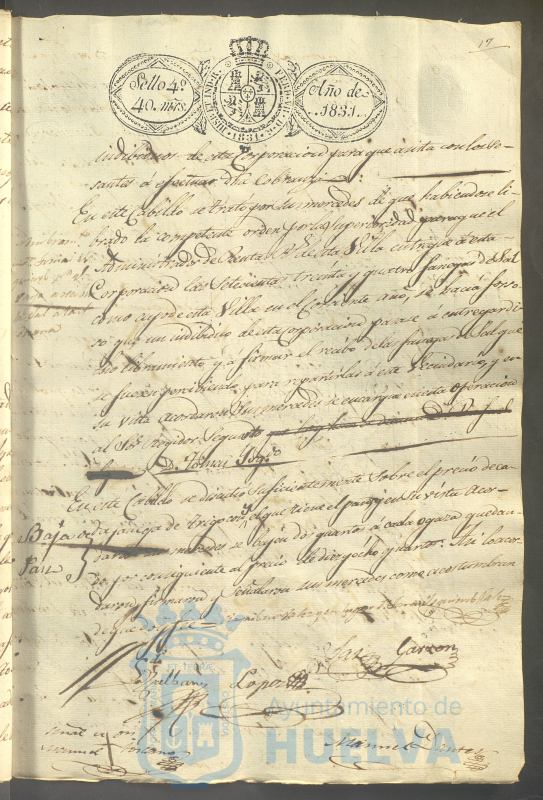 17
Sello 4º
40. mrs.
HISP. ET IND. R. FERD. VII. D. G.
1831
Año de
1831.
individuos de esta Corporacion para que asista con los
santes a efectuar dha Cobranza:
En este Cabildo se trato por sus mercedes de que habiendose li-
brado la competente orden por la Superioridad para que el
Administrador de Rentas de esta Villa entregue a esta
Corporacion las Setecientas treinta y quatro fanegas de Sal
como cupo de esta Villa en el Corriente año, se hacia forzo-
so que un individuo de esta Corporacion pase a entregar di-
cho libramiento, y a firmar el recibo de las fanegas de Sal que
se fuesen percibiendo para repartirlas a este Vecindario, y en
su vista acordaron sus mercedes se encargue en esta Operacion
al Sor. Regidor Segundo
D. Tomas
En este Cabildo se discutio suficientemente sobre el precio de ca-
Baja de
Pan
da fanega de trigo con el que tiene el pan, y en su vista Acor-
daron sus mercedes se baje dos quartos a cada ogaza quedan-
do por consiguiente al precio de diez y ocho quartos: Asi lo acor-
daron, firmaron y Señalaron sus mercedes como acostumbran
de que doy fee
Saez
Garzon
Lopez
Señal de
Manuel
Manuel Dantos
Ayuntamiento de
HUELVA